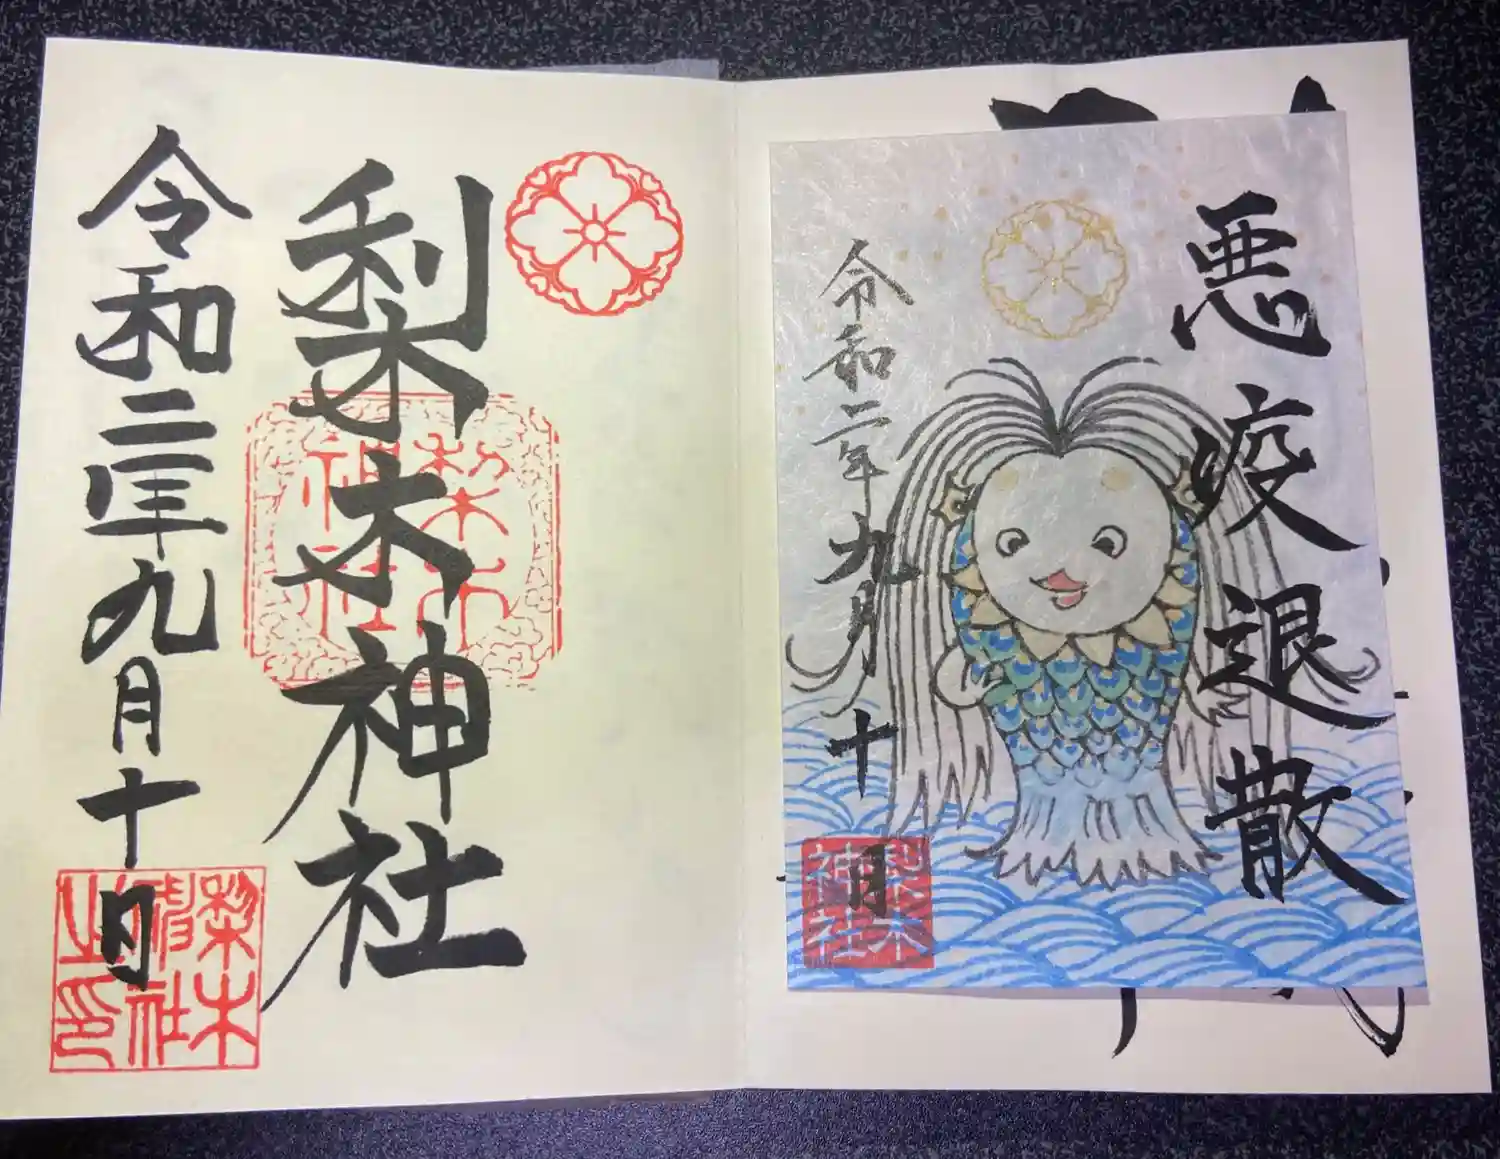 悪疫退散
令和二年九月十日
梨木神社
梨木神社
令和二年九月十日
梨木神社
梨木神社之印